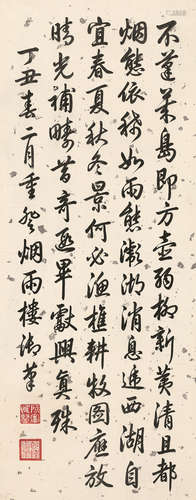 不蓬萊島即方壺弱柳新荑清且都
烟態依稀如雨態湖消息遞西湖自
宜春夏秋冬景何必漁樵耕牧圖應放
晴光補疇昔奇畢獻興真殊
丁丑春二月重登烟雨樓御筆